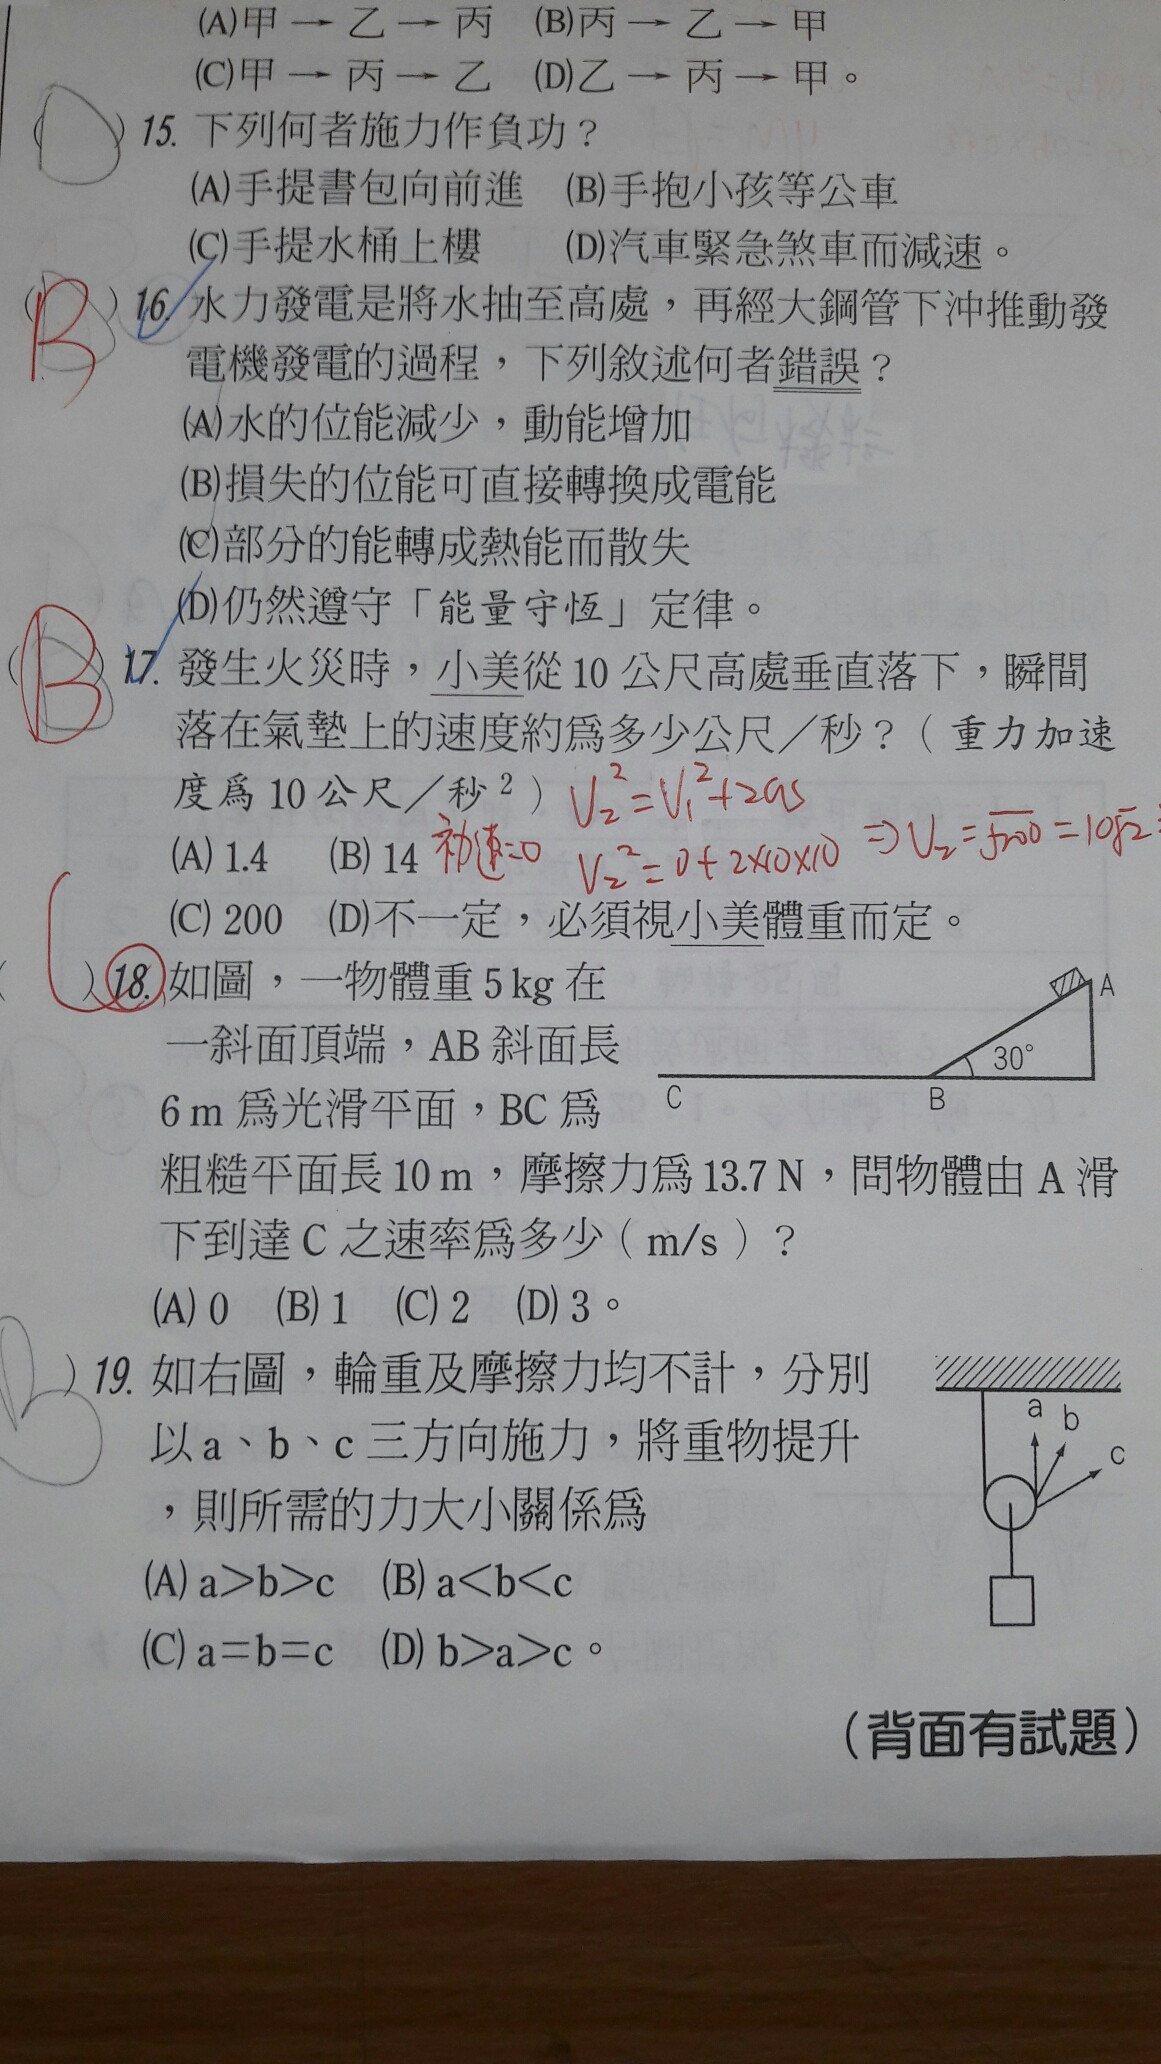 (A)甲→乙→丙 (B)丙→乙→甲
(C)甲→丙→乙 (D)乙→丙→甲。
(D) 15. 下列何者施力作負功？
(A)手提書包向前進 (B)手抱小孩等公車
(C)手提水桶上樓 (D)汽車緊急煞車而減速。
(B) 16. 水力發電是將水抽至高處，再經大鋼管下沖推動發
電機發電的過程，下列敘述何者錯誤？
(A)水的位能減少，動能增加
(B)損失的位能可直接轉換成電能
(C)部分的能轉成熱能而散失
(D)仍然遵守「能量守恆」定律。
(B) 17. 發生火災時，小美從10公尺高處垂直落下，瞬間
落在氣墊上的速度約為多少公尺／秒？（重力加速
度為10公尺／秒²） V₂²=V₁²+2as
(A) 1.4 (B) 14 初速=0 V₂²=0+2×10×10 ⇒V₂=√200=10√2
(C) 200 (D)不一定，必須視小美體重而定。
( ) 18. 如圖，一物體重5 kg在
一斜面頂端，AB斜面長
6 m為光滑平面，BC為
粗糙平面長10 m，摩擦力為13.7 N，問物體由A滑
下到達C之速率為多少（m/s）？
(A) 0 (B) 1 (C) 2 (D) 3。
A
30°
C B
(B) 19. 如右圖，輪重及摩擦力均不計，分別
以a、b、c三方向施力，將重物提升
，則所需的力大小關係為
(A) a>b>c (B) a<b<c
(C) a=b=c (D) b>a>c。
a b c
（背面有試題）